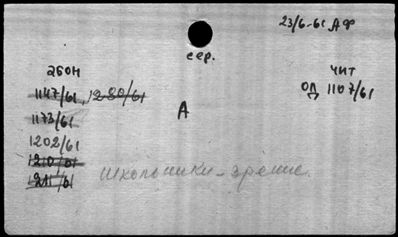 23/6-61 АФ
сер.
абон чит
1147/61, 1280/61 ОД 1107/61
А
1173/61
1202/61
1210/61
1211/61 школьники - зрение.